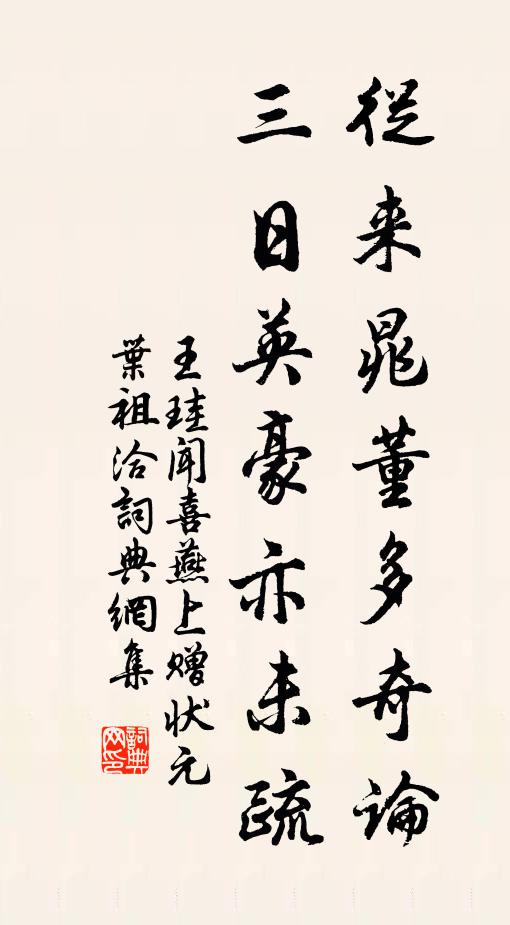 從来鼂董多奇論
三日英豪亦未疏
王珪闻喜燕上赠状元
葉祖洽詞典網集
詞典网印